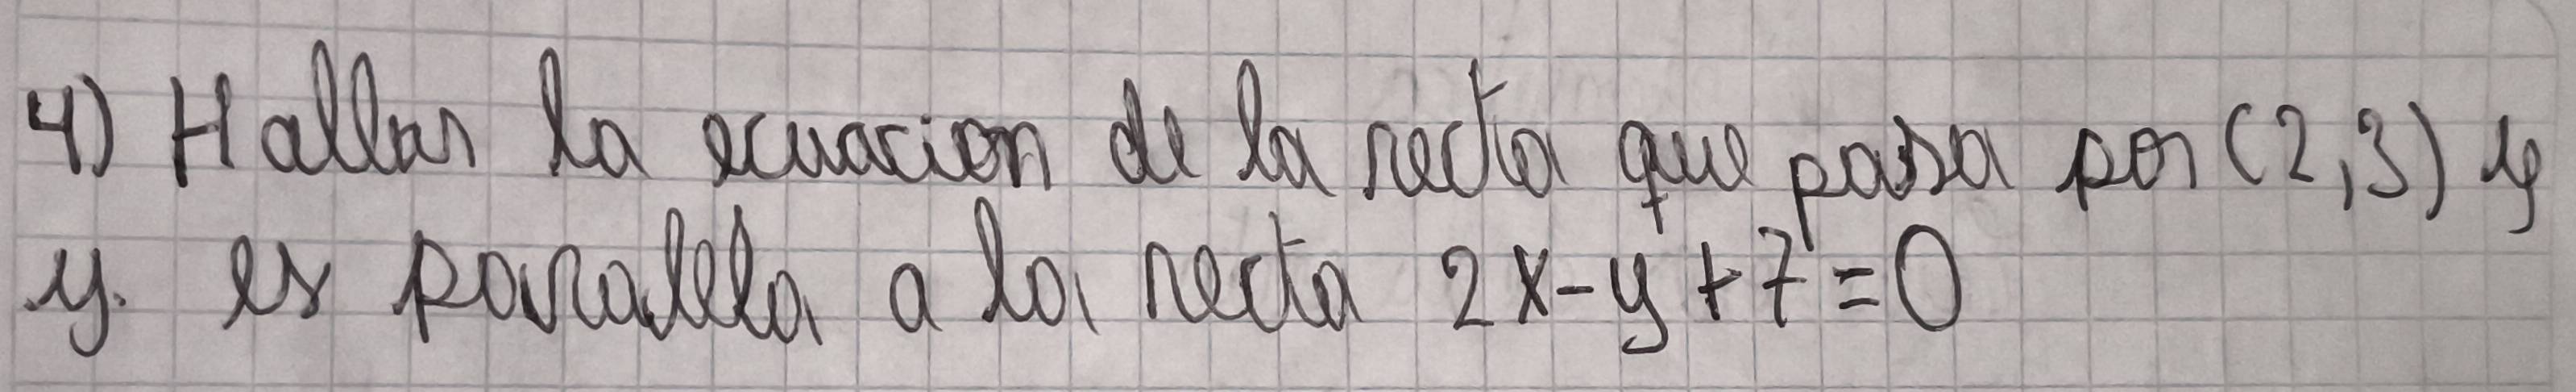 4) Hallar la ecuacion de la recta que pasa por (2,3) y
y. es paralela a la recta 2x-y+7=0